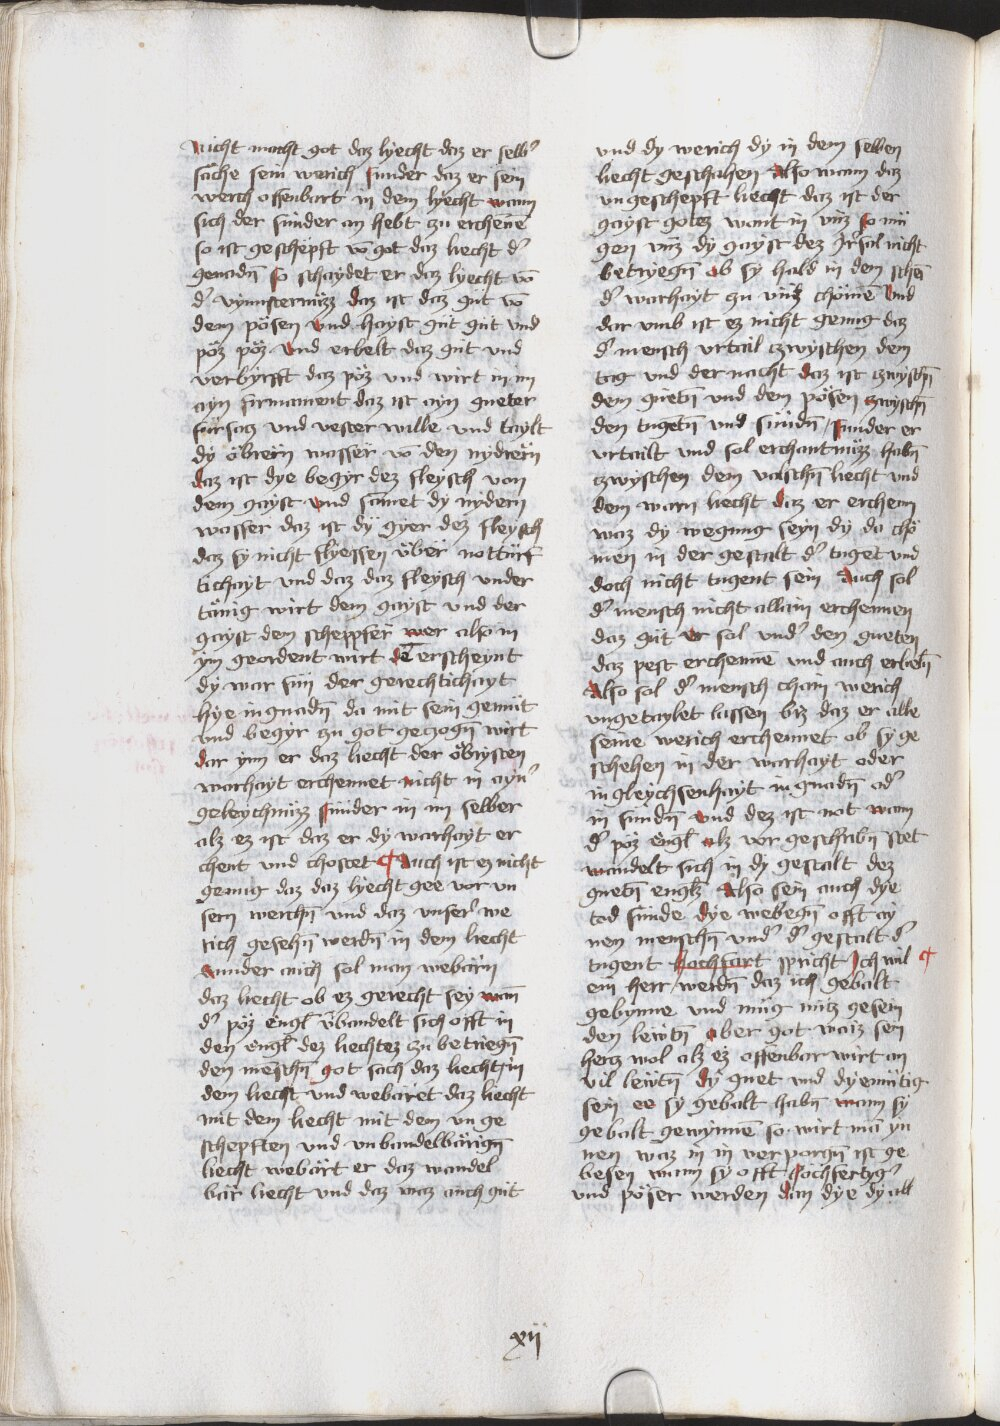 Nicht macht got daz lyecht daz er selb᷑
säche sein werich sunder daz er sein
werch offenbart in dem lyecht wann
sich der sünder an hebt zu erchēnē
so ist geschepft vō got daz liecht d᷑
genadn̄ so schaydet er daz lyecht vō
d᷑ vynnsternüzz daz ist daz gut vō
dem pösen vnd hayst gůt gůt vnd
pöz pöz vnd erbelt daz gůt vnd
verbyrfft daz pöz vnd wirt in im
ayn firmament daz ist ayn gueter
fürsacz vnd vester wille vnd taylt
dy öbrern wasser vō den nydrern
daz ist dye begyr dez fleysch von
dem gayst vnd samet dy nydern
wasser daz ist dy gyer dez fleysch
daz sy nicht flyessen über nottürf
tichayt vnd daz daz fleysch vnder
tänig wirt dem gayst vnd der
gayst dem scheppfer wer also in
ym geordent wirt dē erscheynt
dy war sün der gerechtichayt
hye in gnadn̄ da mit sein gemüt
vnd begyr zu got geczogn̄ wirt
dar ynn er daz liecht der öbrysten
warhayt erchennet nicht in ayn᷑
geleychnüzz sünder in im selber
alz ez ist daz er dy warhayt er
chent vnd chostet ¶ Auch ist ez nicht
genug daz daz lyecht gee vor vn
sern werchn̄ vnd daz vnser᷑ we
rich gesehn̄ werdn̄ in dem liecht
sunder auch sol man webärn
daz liecht ob ez gerecht sey wan̄
d᷑ pöz engl v̈bandelt sich offt in
den engl dez liechtez zu betriegn̄
den menschn̄ got sach daz liecht in
dem liecht vnd webäret daz liecht
mit dem liecht mit dem vn ge
schepften vnd vnbandelbärign̄
liecht webärt er daz wandel
bär liecht vnd daz waz auch gůt
vnd dy werich dy in dem selben
liecht geschahen Also wann daz
vngeschepft liecht daz ist der
gayst gotez want in vnz so mü
gen vnz dy gayst dez irsal nicht
betryegn̄ ob sy hald in dem schēī
d᷑ warhayt zu vnz chömē Vnd
dar vmb ist ez nicht genug daz
d᷑ mensch vrtail czwyschen dem
tag vnd der nacht daz ist czwyschn̄
dem guetn̄ vnd dem pösen czwyschn̄
den tugetn̄ vnd sündn̄ / sunder er
vrtailt vnd sol erchantnüzz habn̄
czwyschen dem valschn̄ liecht vnd
dem warn liecht daz er erchenn
waz dy wegung seyn dy da chö
men in der gestalt d᷑ tuget vnd
doch nicht tugent sein Auch sol
d᷑ mensch nicht allain erchennen
daz gůt er sol vnd᷑ den gueten
daz pest erchennē vnd auch erbeln̄
Also sol d᷑ mensch chain werich
vngetaylet lassen biz daz er alle
seine werich erchennet ob sy ge
schehen in der warhayt oder
in gleychsenhayt in gnadn̄ od᷑
in sündn̄ vnd dez ist not wann
d᷑ pöz engl alz vor geschribn̄ stet
wandelt sich in dy gestalt dez
guetn̄ englz Also sein auch dye
tod sünde dye webegn̄ offt ay
nen menschn̄ vnd᷑ d᷑ gestalt d᷑
tugent hochfart spricht Ich wil ¶
ein herr werdn̄ daz ich gebalt
gebynne vnd müg nücz gesein
den lewtn̄ aber got waiz sein
hercz wol alz ez offenbar wirt an
vil lewtn̄ dy guet vnd dyemütig
sein ee sy gebalt habn̄ wann sy
gebalt gewynnē so wirt mā yn
nen waz in in verporgn̄ ist ge
besen wann sy offt hochfertig᷑
vnd pöser werden dan dye dy all
xij